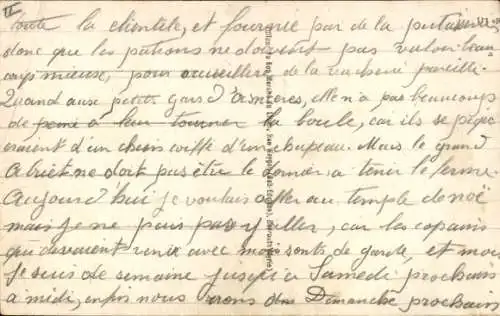 II
toute la clientèle, et fourgue par de la putain
donc que les patrons ne doivent pas valoir beau
coup mieux, pour accueillir de la vacherie pareille
Quand aux petits gars d'Asnières, elle n'a pas beaucoup
de peine à leur tourner la boule, car ils se
d'un chien coiffé d'un chapeau. Mais le grand
ne doit pas être le dernier à tenir le ferme
Aujourd'hui je voulais aller au temple de noë
mais je ne puis pas y aller, car les copains
qui devaient venir avec moi sont de garde, et moi
je suis de semaine jusqu'à Samedi prochain
à midi, enfin nous verrons donc Dimanche prochain